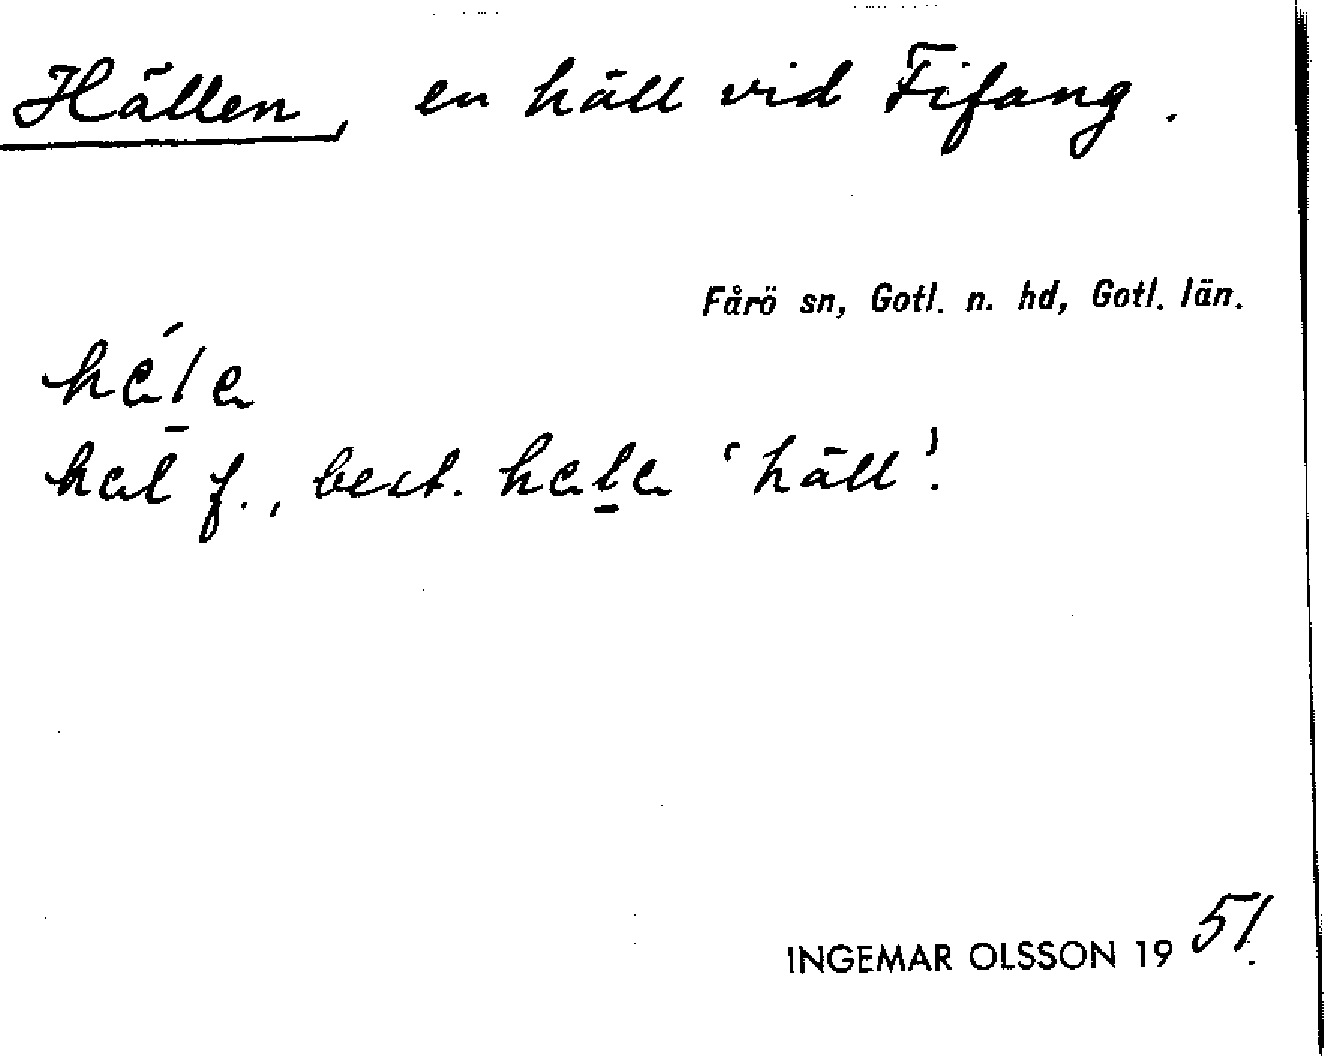 Hällen, en häll vid Fifang.
Fårö sn, Gotl. n. hd, Gotl. län.
hɑ́l̠ɑ
hɑl f., best. hɑl̠ɑ 'häll'.
INGEMAR OLSSON 1951.